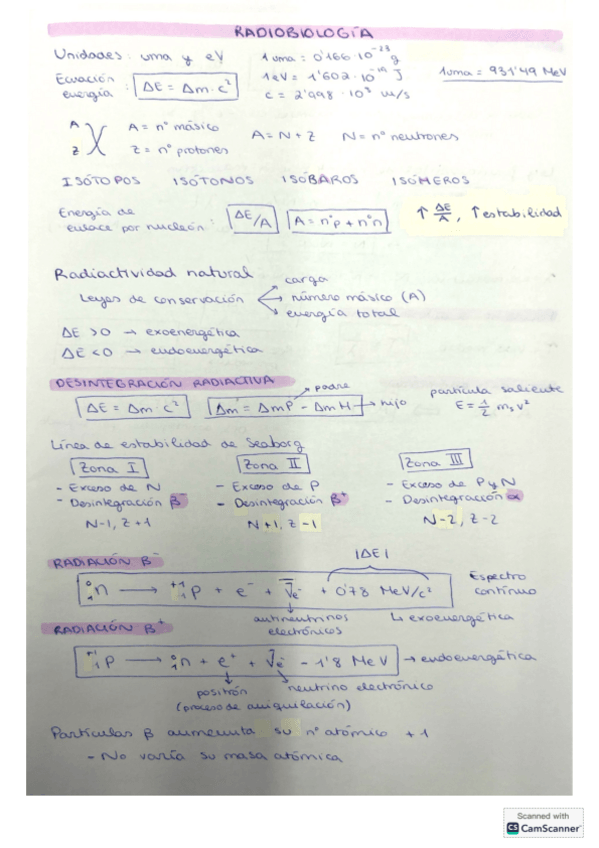 RADIOBIOLOGÍA
Unidades: uma y eV
1uma = 0'166·10⁻²³ g
1eV = 1'602·10⁻¹⁹ J
c = 2'998·10⁸ m/s
1uma = 931'49 MeV
Ecuación energía : ΔE = Δm·c²
A Z X
A = nº másico
Z = nº protones
A = N + Z N = nº neutrones
ISÓTOPOS ISÓTONOS ISÓBAROS ISÓMEROS
Energía de enlace por nucleón : ΔE/A A = nºp + nºn
↑ ΔE/A, ↑estabilidad
Radiactividad natural
Leyes de conservación
→ carga
→ número másico (A)
→ energía total
ΔE > 0 → exoenergética
ΔE < 0 → endoenergética
DESINTEGRACIÓN RADIACTIVA
ΔE = Δm·c²
Δm = ΔmP - ΔmH
padre
hijo
partícula saliente
E = 1/2 m, v²
Línea de estabilidad de Seaborg
Zona I
- Exceso de N
- Desintegración β⁻
N-1, Z+1
Zona II
- Exceso de P
- Desintegración β⁺
N+1, Z-1
Zona III
- Exceso de P y N
- Desintegración α
N-2, Z-2
RADIACIÓN β⁻
|ΔE|
⁰₁n → ⁺¹₁P + e⁻ + ν̅e⁻ + 0'78 MeV/c²
Espectro continuo
antineutrinos electrónicos
↳ exoenergética
RADIACIÓN β⁺
⁺¹₁P → ⁰₁n + e⁺ + νe⁻ - 1'8 MeV → endoenergética
positrón (proceso de aniquilación)
neutrino electrónico
Partículas β aumenta su nº atómico +1
- No varía su masa atómica
Scanned with
CS CamScanner